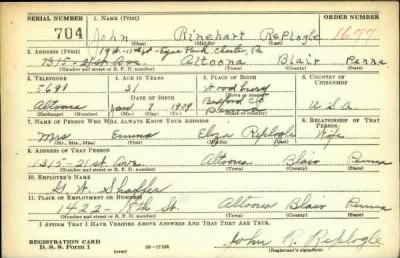 SERIAL NUMBER 1. NAME (Print) ORDER NUMBER
704 John Rinehart Replogle 1677
(First) (Middle) (Last)
2. ADDRESS (Print)
1315-21st Ave. Altoona Blair Penna
(Number and street or R. F. D. number) (Town) (County) (State)
3. TELEPHONE 4. AGE IN YEARS 5. PLACE OF BIRTH 6. COUNTRY OF CITIZENSHIP
5691 31 Woodbury
DATE OF BIRTH Bedford Co
Altoona 1909 Penna U.S.A
(Exchange) (Number) (Mo.) (Day) (Yr.) (State or country)
7. NAME OF PERSON WHO WILL ALWAYS KNOW YOUR ADDRESS 8. RELATIONSHIP OF THAT PERSON
Mrs Emma Eliza Replogle Wife
(Mr., Mrs., Miss) (First) (Middle) (Last)
9. ADDRESS OF THAT PERSON
1315-21st Ave. Altoona Blair Penna
(Number and street or R. F. D. number) (Town) (County) (State)
10. EMPLOYER'S NAME
G. W. Shaffer
11. PLACE OF EMPLOYMENT OR BUSINESS
1422 - 8th St. Altoona Blair Penna
(Number and street or R. F. D. number) (Town) (County) (State)
I AFFIRM THAT I HAVE VERIFIED ABOVE ANSWERS AND THAT THEY ARE TRUE.
REGISTRATION CARD
D. S. S. Form 1 (over) 16-17105 John R. Replogle
(Registrant's signature)